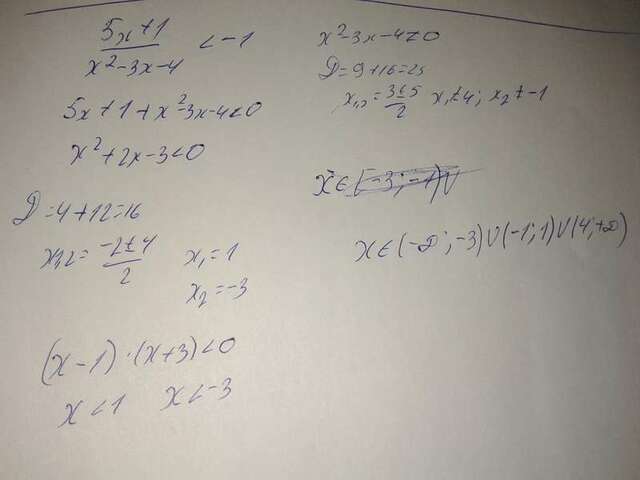 5x+1/x²-3x-4 < -1
5x+1+x²-3x-4<0
x²+2x-3<0
D=4+12=16
x₁,₂ = -2±4/2 x₁=1
x₂=-3
(x-1)·(x+3)<0
x<1 x<-3
x²-3x-4≠0
D=9+16=25
x₁,₂ = 3±5/2 x₁≠4; x₂≠-1
x∈(-3;-1)∪
x∈(-∞;-3)∪(-1;1)∪(4;+∞)